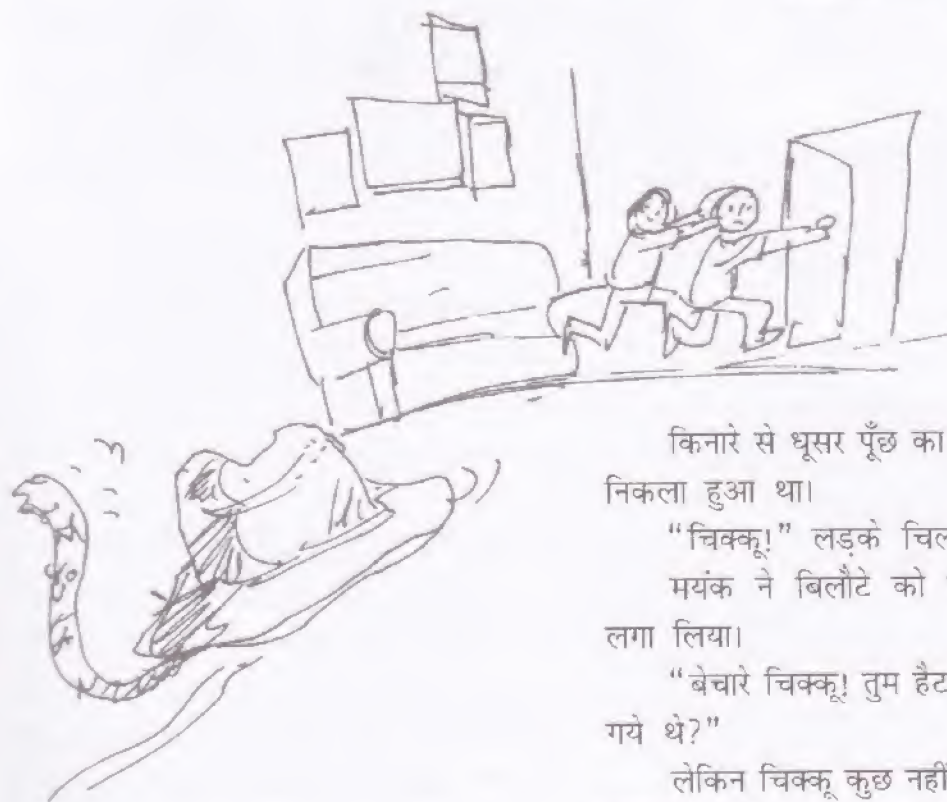 किनारे से धूसर पूँछ का
निकला हुआ था।
"चिक्कू!" लड़के
मयंक ने बिलौटे को
लगा लिया।
"बेचारे चिक्कू! तुम
गये थे?"
लेकिन चिक्कू कुछ नहीं